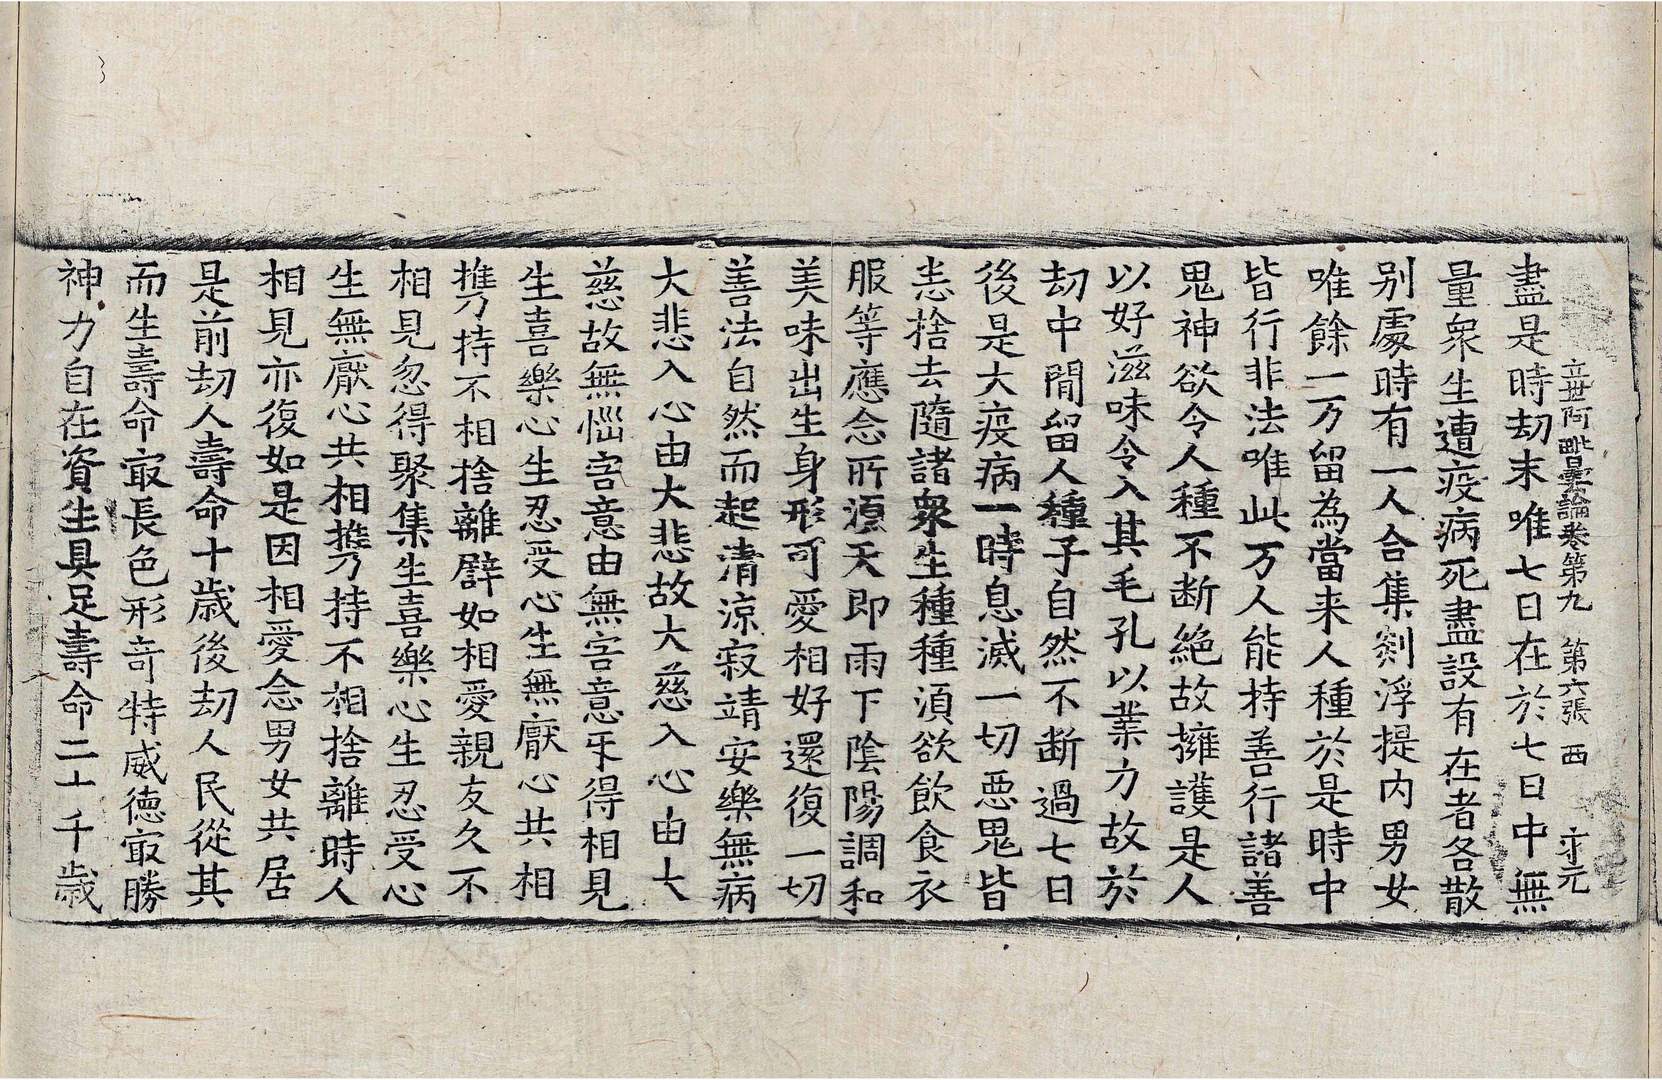 立世阿毗曇論卷第九 第六張 西 守元
盡是時劫末唯七日在於七日中無
量衆生遭疫病死盡設有在者各散
別處時有一人合集剡浮提內男女
唯餘一万留為當来人種於是時中
皆行非法唯此万人能持善行諸善
鬼神欲令人種不断絶故擁護是人
以好滋味令入其毛孔以業力故於
劫中閒留人種子自然不断過七日
後是大疫病一時息滅一切惡鬼皆
悉捨去隨諸衆生種種湏欲飲食衣
服等應念所湏天即雨下陰陽調和
美味出生身形可愛相好還復一切
善法自然而起清涼寂靖安樂無病
大悲入心由大悲故大慈入心由大
慈故無惱害意由無害意㸦得相見
生喜樂心生忍受心生無厭心共相
携持不相捨離譬如相愛親友久不
相見忽得聚集生喜樂心生忍受心
生無厭心共相携持不相捨離時人
相見亦復如是因相愛念男女共居
是前劫人壽命十歲後劫人民從其
而生壽命㝡長色形竒特威徳㝡勝
神力自在資生具足壽命二十千歲